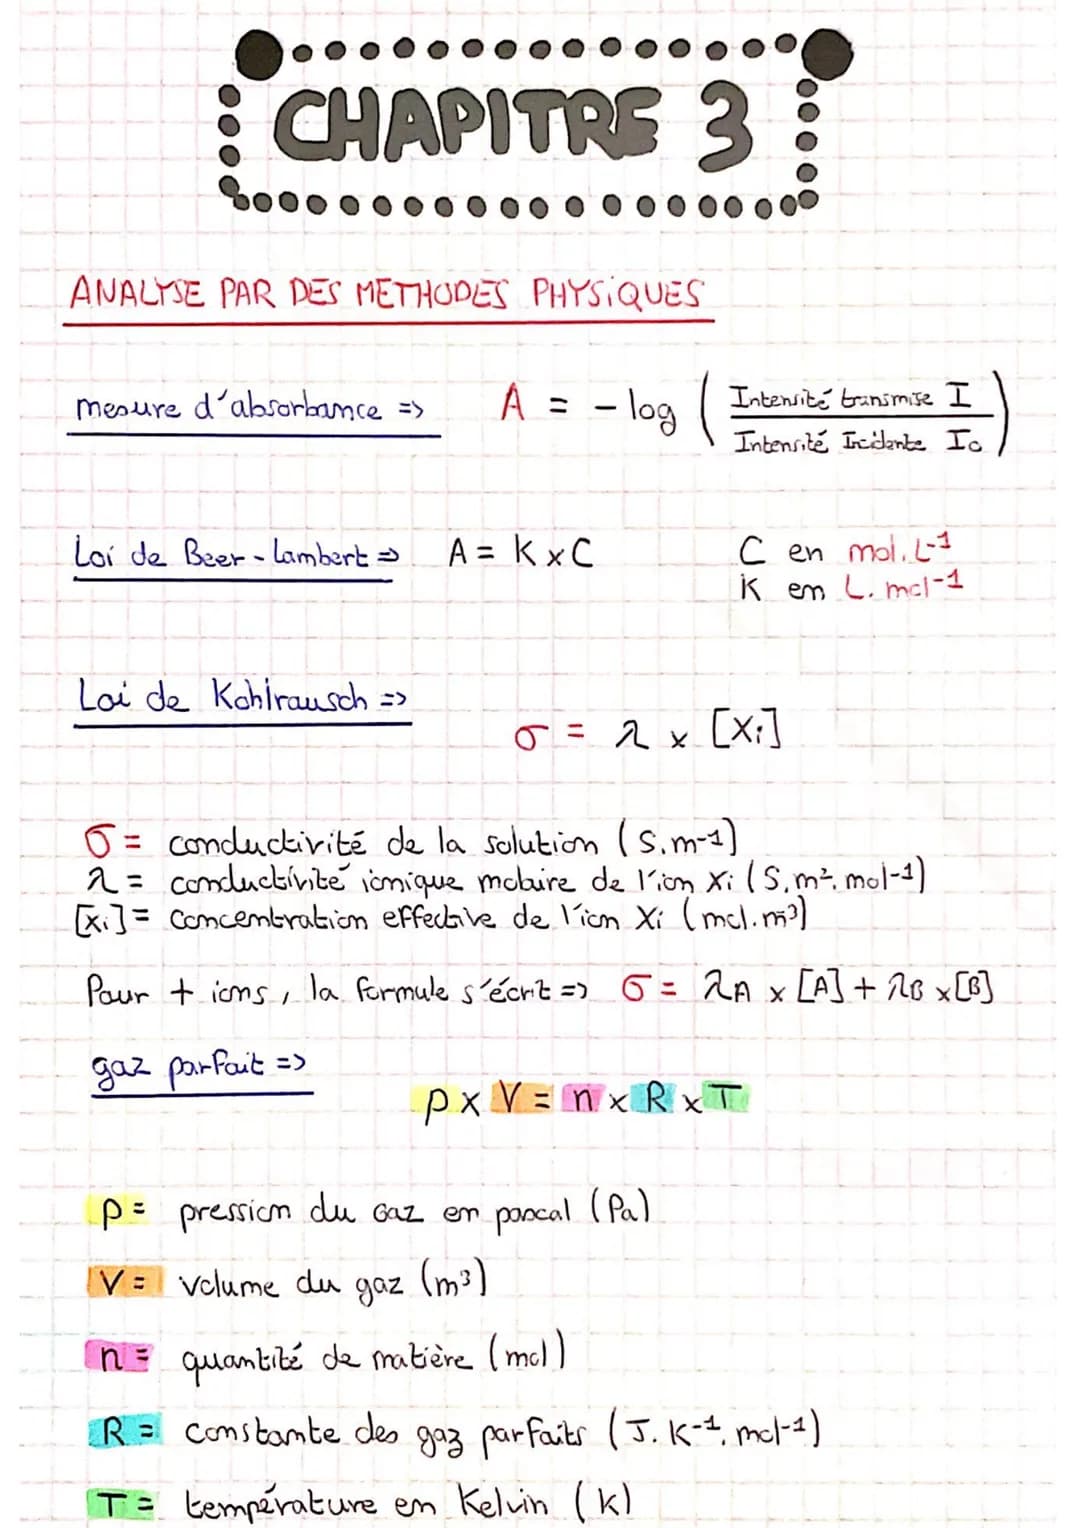 CHAPITRE 3
ANALYSE PAR DES METHODES PHYSiQUES
mesure d'absorbance => A = - log ( Intensité transmise I / Intensité Incidente I₀ )
Loi de Beer-Lambert => A = K x C C en mol.L-1
K en L.mol-1
Loi de Kohlrausch =>
σ = λ x [Xi]
σ = conductivité de la solution (S.m-1)
λ = conductivité ionique molaire de l'ion Xi (S.m².mol-1)
[Xi] = concentration effective de l'ion Xi (mol.m³)
Pour + ions, la formule s'écrit => σ = λA x [A] + λB x [B]
gaz parfait =>
p x V = n x R x T
p = pression du Gaz en pascal (Pa)
V = volume du gaz (m³)
n = quantité de matière (mol)
R = constante des gaz parfaits (J.K-1.mol-1)
T = température en Kelvin (K)